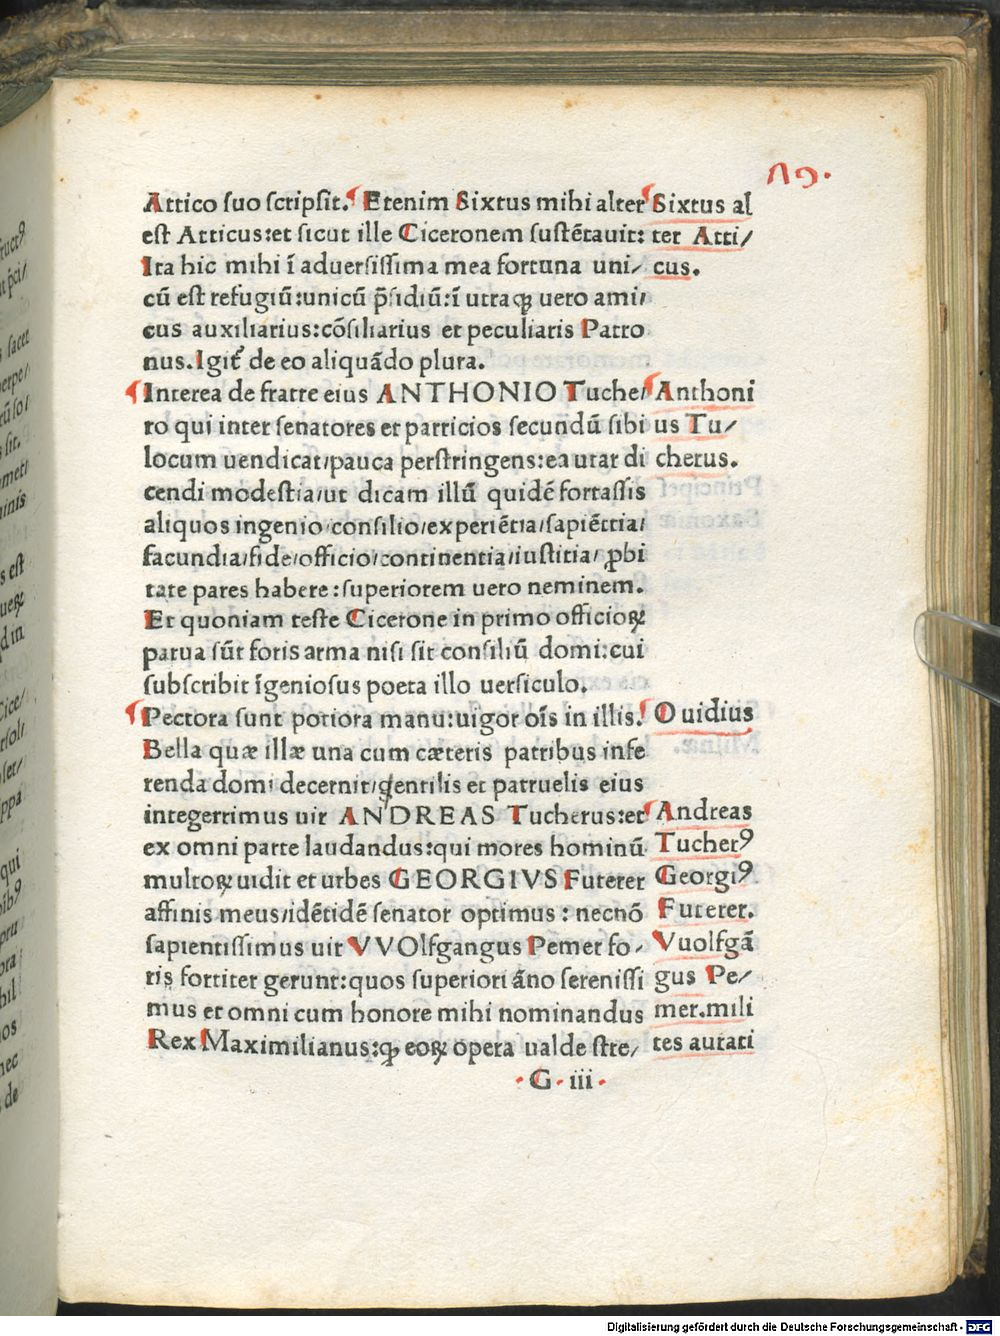 Attico suo scripsit. Etenim Sixtus mihi alter
est Atticus: et sicut ille Ciceronem sustētauit:
Ita hic mihi ī aduersissima mea fortuna uni/
cū est refugiū: unicū p̄sidiū: ī utraqꝫ uero ami/
cus auxiliarius: cōsiliarius et peculiaris Patro
nus. Igit̃ de eo aliquādo plura.
Interea de fratre eius ANTHONIO Tuche/
ro qui inter senatores et patricios secundū sibi
locum uendicat/pauca perstringens: ea utar di
cendi modestia/ut dicam illū quidē fortassis
aliquos ingenio/consilio/experiētia/sapiētia/
facundia/fide/officio/continentia/iustitia/ꝓbi
tate pares habere: superiorem uero neminem.
Et quoniam teste Cicerone in primo officioꝝ
parua sūt foris arma nisi sit consiliū domi: cui
subscribit īgeniosus poeta illo uersiculo.
Pectora sunt potiora manu: uigor oīs in illis.
Bella quæ illæ una cum cæteris patribus infe
renda domi decernit/gentilis et patruelis eius
integerrimus uir ANDREAS Tucherus: et
ex omni parte laudandus: qui mores hominū
multoꝝ uidit et urbes GEORGIVS Futerer
affinis meus/idētidē senator optimus: necnō
sapientissimus uir VVOlfgangus Pemer fo/
ris fortiter gerunt: quos superiori āno serenissi
mus et omni cum honore mihi nominandus
Rex Maximilianus: qꝫ eoꝝ opera ualde stre/
· G · iii ·
Sixtus al
ter Atti/
cus.
Anthoni
us Tu/
cherus.
Ouidius
Andreas
Tucherꝰ
Georgiꝰ
Futerer.
Vuolfgā
gus Pe/
mer. mili
tes aurati
Digitalisierung gefördert durch die Deutsche Forschungsgemeinschaft - DFG